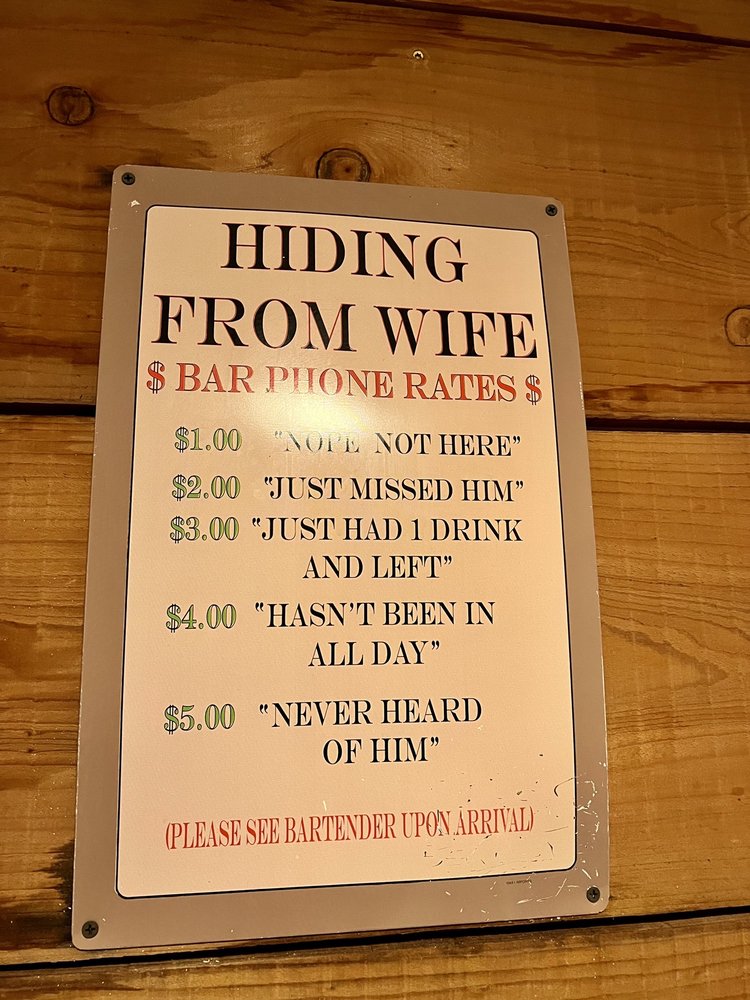 HIDING
FROM WIFE
$ BAR PHONE RATES $
$1.00 "NOPE NOT HERE"
$2.00 "JUST MISSED HIM"
$3.00 "JUST HAD 1 DRINK
AND LEFT"
$4.00 "HASN'T BEEN IN
ALL DAY"
$5.00 "NEVER HEARD
OF HIM"
(PLEASE SEE BARTENDER UPON ARRIVAL)